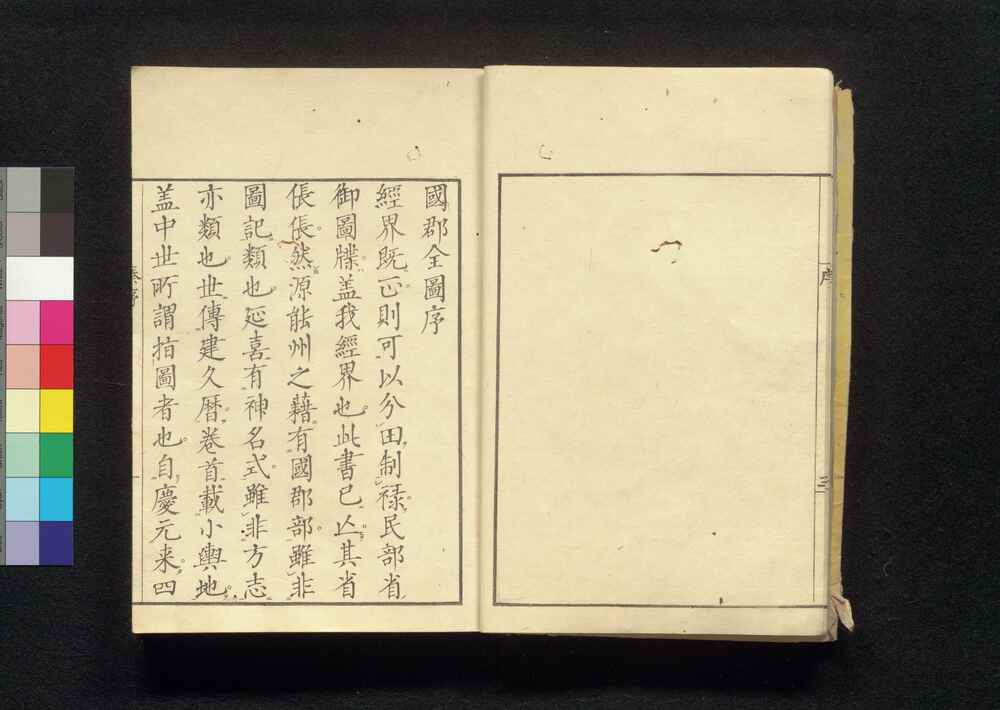 國郡全圖序
經界既正則可以分田制祿民部省
御圖牒蓋我經界也此書已亾其省
倀倀然源能州之藉有國郡部雖非
圖記類也延喜有神名式雖非方志
亦類也世傳建久曆卷首載小輿地
盖中世所謂拍圖者也自慶元来四
序
三